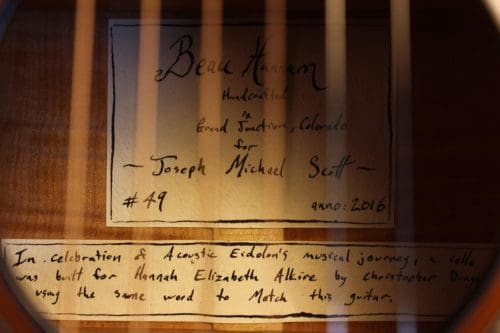 Beau Hannam
Handcrafted
in
Grand Junction, Colorado
for
- Joseph Michael Scott -
#49 anno: 2016
In celebration of Acoustic Eidolon's musical journey, a cello
was built for Hannah Elizabeth Alkire by Christopher
using the same wood to Match this guitar.